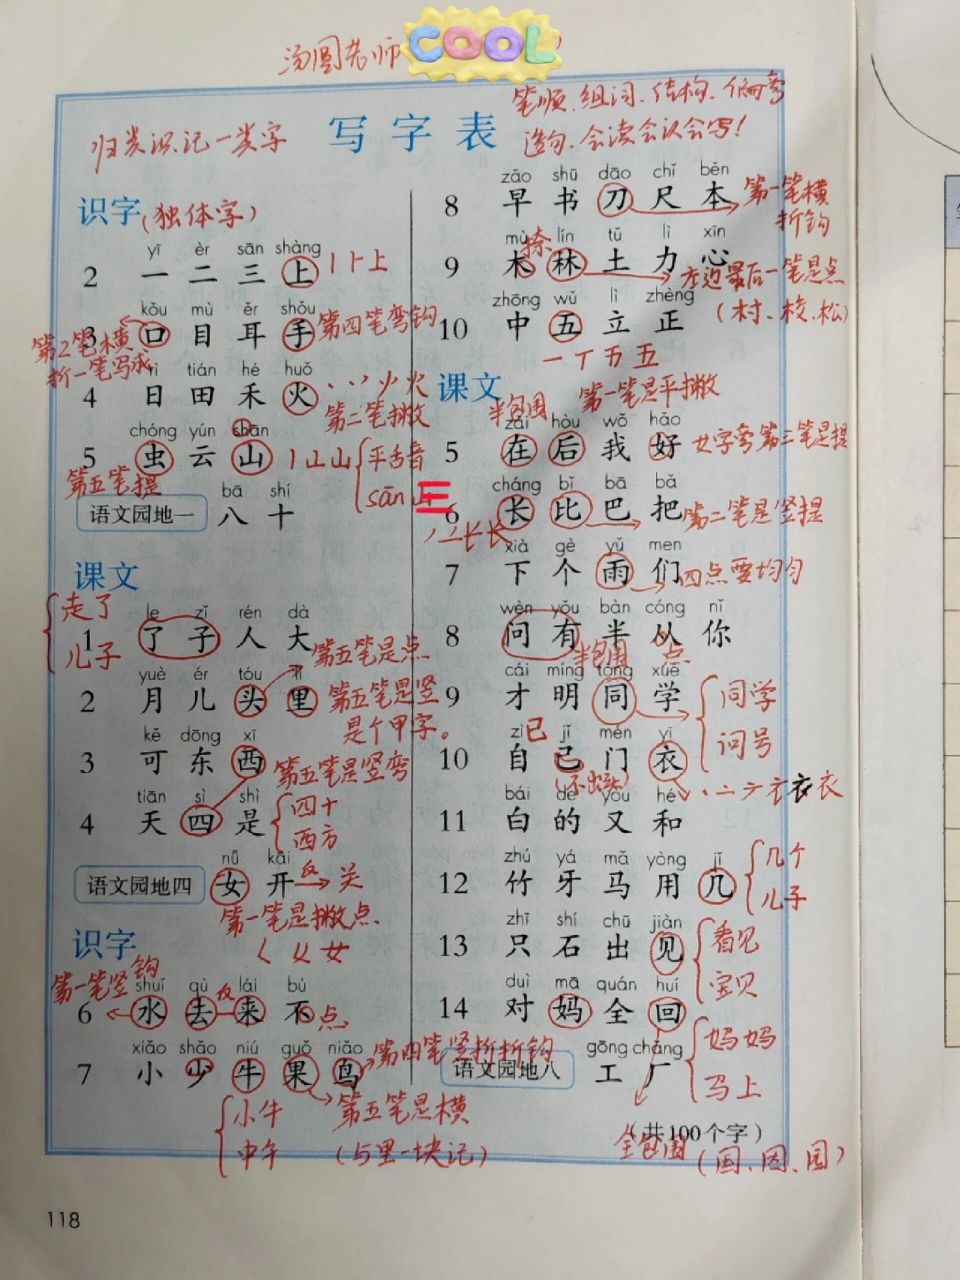 汤圆老师 COOL
笔顺、组词、结构、偏旁
造句、会读会认会写！
归类识记一类字
写字表
识字(独体字)
yī èr sān shàng
2 一 二 三 上 丨卜上
kǒu mù ěr shǒu
3 口 目 耳 手 第四笔弯钩
第2笔横
折一笔写成
rì tián hé huǒ
4 日 田 禾 火
第二笔撇
chóng yún shān
5 虫 云 山 丨山山
平舌音
sān 三
第五笔提
bā shí
语文园地一 八 十
课文
走了
儿子
le zǐ rén dà
1 了 子 人 大
第五笔是点
yuè ér tóu lǐ
2 月 儿 头 里 第五笔是竖
是个甲字。
kě dōng xī
3 可 东 西 第五笔是竖弯
tiān sì shì
4 天 四 是
四十
西方
nǚ kāi
语文园地四 女 开 反 关
第一笔是撇点
ㄑ 女
识字
第一笔竖钩
shuǐ qù lái bù
6 水 去 反 来 不 点
xiǎo shǎo niú guǒ niǎo
7 小 少 牛 果 鸟 第四笔竖折折钩
小牛
中午
第五笔是横
(与里一块记)
zǎo shū dāo chǐ běn
8 早 书 刀 尺 本
第一笔横
折钩
mù 捺 lín tǔ lì xīn
9 木 林 土 力 心
左边最后一笔是点
(村、校、松)
zhōng wǔ lì zhèng
10 中 五 立 正
一 丆 万 五
课文
第一笔是平撇
半包围
zài hòu wǒ hǎo
5 在 后 我 好 女字旁第三笔是提
cháng bǐ bā bǎ
6 长 比 巴 把 第二笔是竖提
长长
xià gè yǔ men
7 下 个 雨 们 四点要均匀
wèn yǒu bàn cóng nǐ
8 问 有 半 从 你
半包围 点
cái míng tóng xué
9 才 明 同 学
同学
问号
zì 已 jǐ mén yī
10 自 己 门 衣
(不出头)
丶 亠 衣衣衣
bái de yòu hé
11 白 的 又 和
zhú yá mǎ yòng jǐ
12 竹 牙 马 用 几
几个
儿子
zhī shí chū jiàn
13 只 石 出 见
看见
宝贝
duì mā quán huí
14 对 妈 全 回
妈妈
马上
gōng chǎng
语文园地八 工 厂
(共100个字)
全包围 (国、因、园)
118